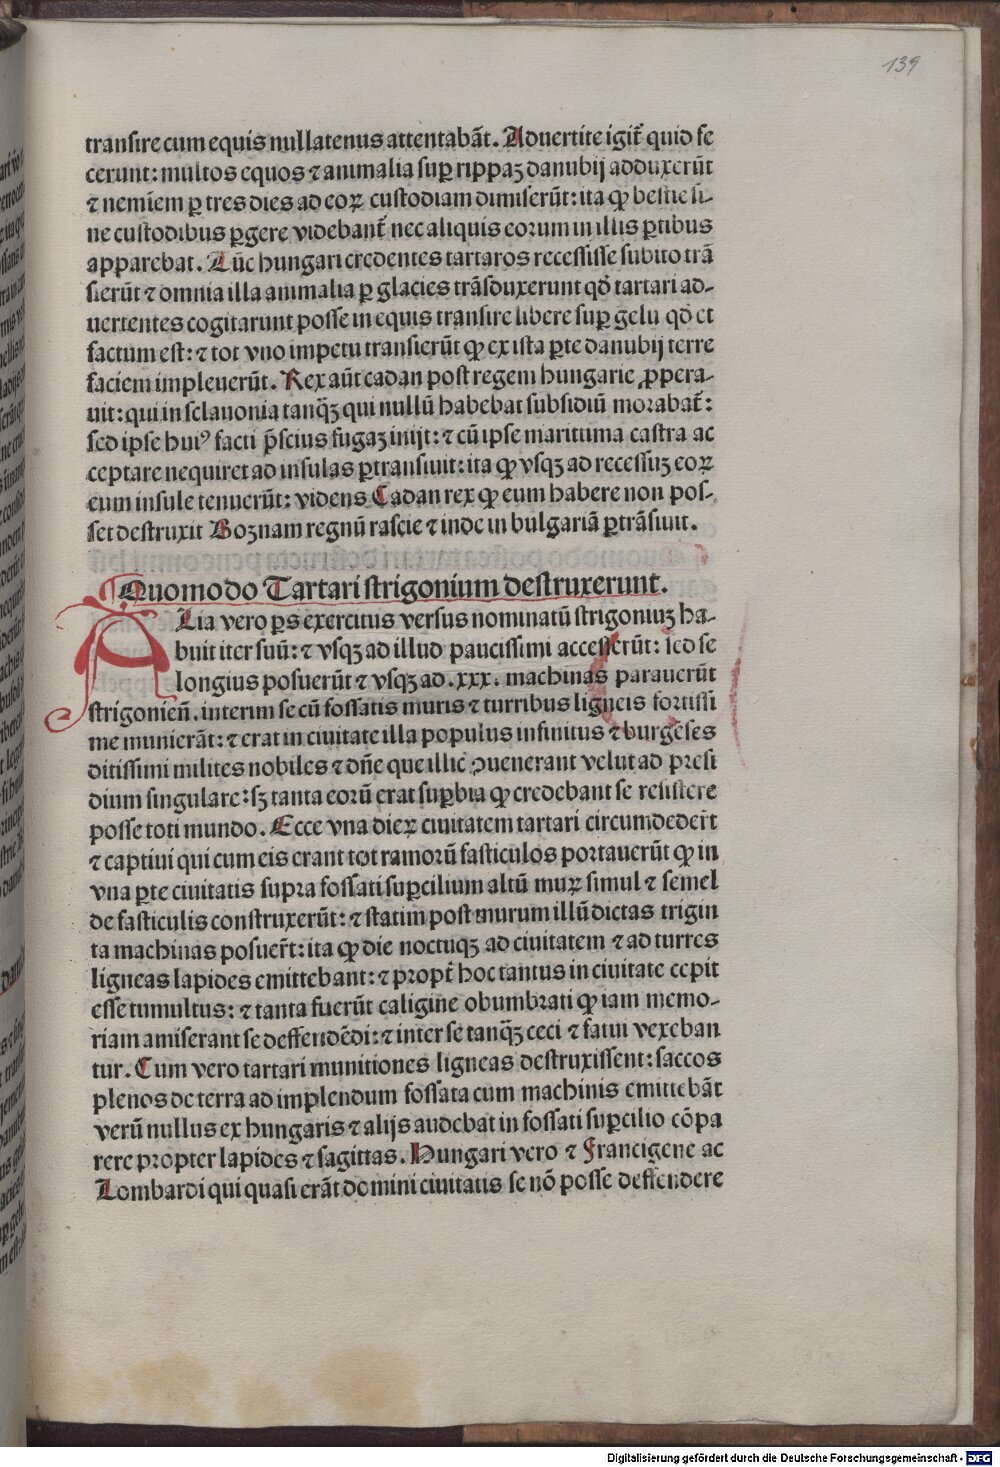 139
transire cum equis nullatenus attentabãt. Aduertite igit̃ quid fe
cerunt: multos equos ⁊ animalia suꝑ rippaꝫ danubij adduxerũt
⁊ neminẽ ꝑ tres dies ad eoꝝ custodiam dimiserũt: ita ꝙ bestie si-
ne custodibus ꝑgere videbant̃ nec aliquis eorum in illis ꝑtibus
apparebat. Tũc hungari credentes tartaros recessisse subito trã
sierũt ⁊ omnia illa animalia ꝑ glacies trãsduxerunt qð tartari ad-
uertentes cogitarunt posse in equis transire libere suꝑ gelu qð et
factum est: ⁊ tot vno impetu transierũt ꝙ ex ista ꝑte danubij terre
faciem impleuerũt. Rex aũt cadan post regem hungarie ꝓpera-
uit: qui in sclauonia tanq̃ꝫ qui nullũ habebat subsidiũ morabat̃:
sed ipse huiꝰ facti p̃scius fugaꝫ inijt: ⁊ cũ ipse marituma castra ac
ceptare nequiret ad insulas ꝑtransiuit: ita ꝙ vsqꝫ ad recessuꝫ eoꝝ
eum insule tenuerũt: videns Cadan rex ꝙ eum habere non pos-
set destruxit Boznam regnũ rascie ⁊ inde in bulgariã ꝑtrãsiuit.
Quomodo Tartari strigonium destruxerunt.
ALia vero ꝑs exercitus versus nominatũ strigoniuꝫ ha-
buit iter suũ: ⁊ vsqꝫ ad illud paucissimi accesserũt: sed se
longius posuerũt ⁊ vsqꝫ ad .xxx. machinas parauerũt
strigonień. interim se cũ fossatis muris ⁊ turribus ligneis fortissi
me munierãt: ⁊ erat in ciuitate illa populus infinitus ⁊ burgẽses
ditissimi milites nobiles ⁊ dñe que illic ꝯuenerant velut ad presi
dium singulare: sꝫ tanta eorũ erat suꝑbia ꝙ credebant se resistere
posse toti mundo. Ecce vna dieꝝ ciuitatem tartari circumdeder̃t
⁊ captiui qui cum eis erant tot ramorũ fasticulos portauerũt ꝙ in
vna ꝑte ciuitatis supra fossati suꝑcilium altũ muꝝ simul ⁊ semel
de fasticulis construxerũt: ⁊ statim post murum illũ dictas trigin
ta machinas posuer̃t: ita ꝙ die noctuqꝫ ad ciuitatem ⁊ ad turres
ligneas lapides emittebant: ⁊ propt̃ hoc tantus in ciuitate cepit
esse tumultus: ⁊ tanta fuerũt caligine obumbrati ꝙ iam memo-
riam amiserant se deffendẽdi: ⁊ inter se tanq̃ꝫ ceci ⁊ fatui vexeban
tur. Cum vero tartari munitiones ligneas destruxissent: saccos
plenos de terra ad implendum fossata cum machinis emittebãt
verũ nullus ex hungaris ⁊ alijs audebat in fossati suꝑcilio cõpa
rere propter lapides ⁊ sagittas. Hungari vero ⁊ Francigene ac
Lombardi qui quasi erãt domini ciuitatis se nõ posse deffendere
Digitalisierung gefördert durch die Deutsche Forschungsgemeinschaft - DFG